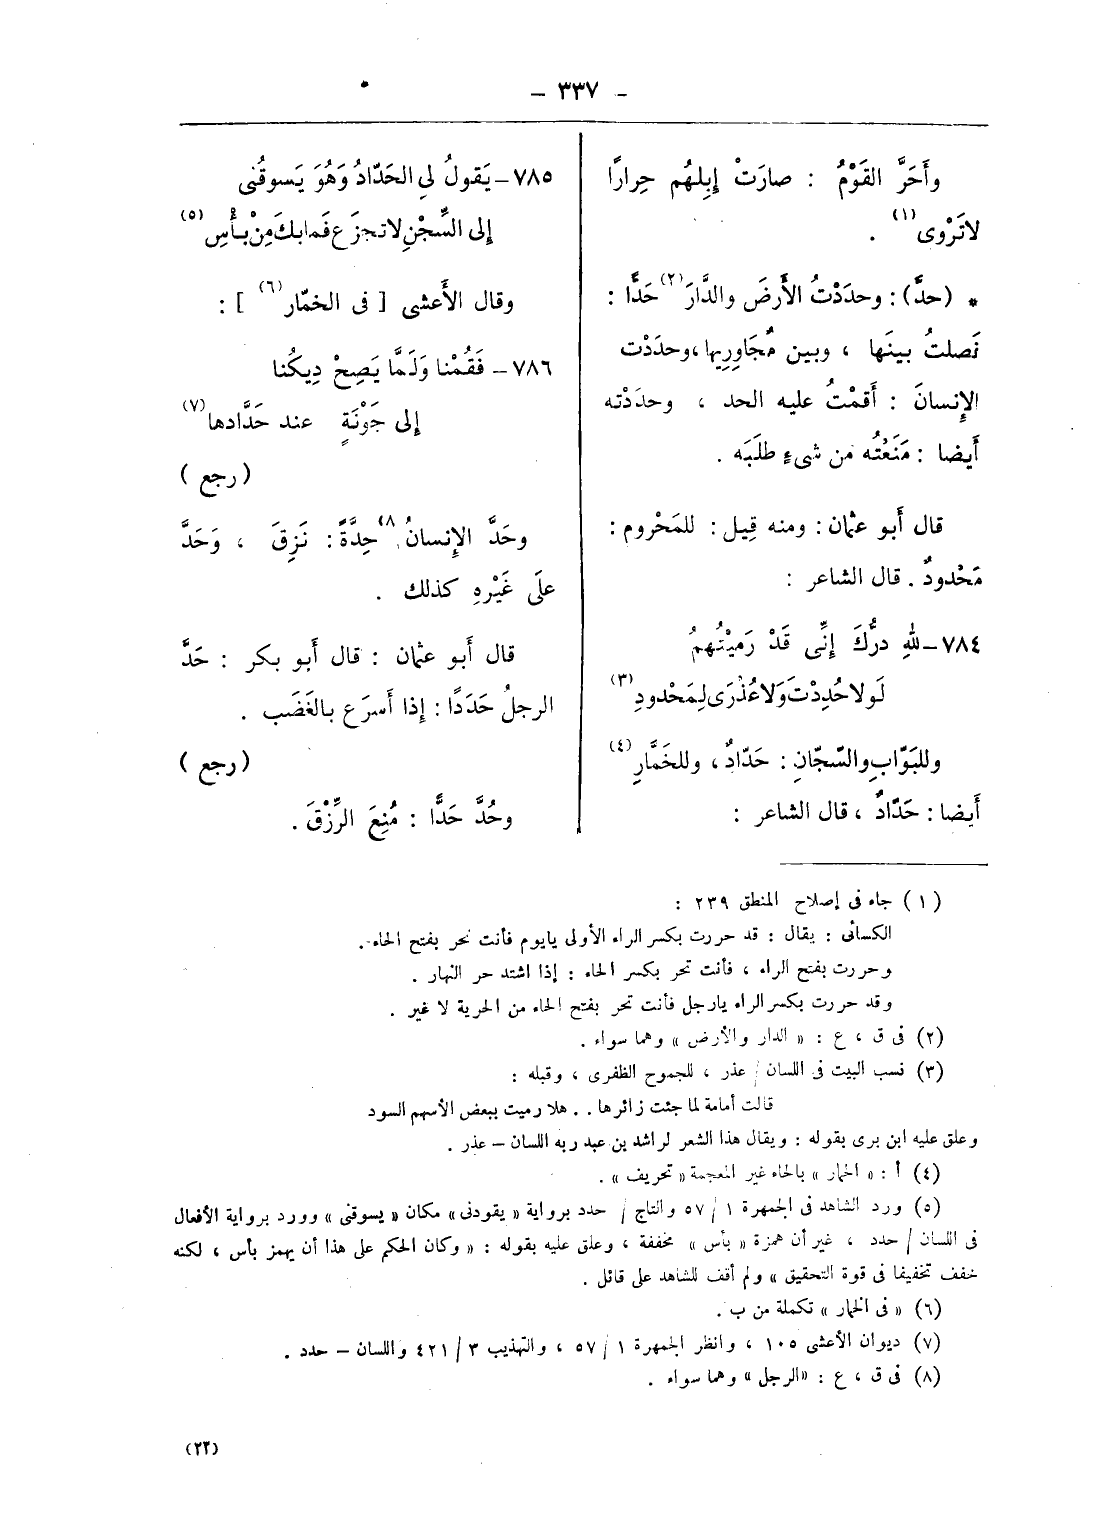 - ٣٣٧ -
وأَحَرَّ القَوْمُ : صارَتْ إِبِلهُم حِرارًا
لاتَرْوى (١) .
* (حدَّ) : وحدَدْتُ الأَرضَ والدَّارَ (٢) حَدًّا :
فَصلتُ بينَها ، وبين مُجَاوِرِيها ، وحدَدْت
الإِنسانَ : أَقمْتُ عليه الحد ، وحدَدْته
أَيضا : مَنَعْتُه من شىءٍ طلَبَه .
قال أَبو عثمان : ومنه قِيل : للمَحْروم :
مَحْدودٌ . قال الشاعر :
٧٨٤ - للهِ درُّكَ إِنِّى قَدْ رَمَيْتُهمُ
لَولا حُدِدْتَ وَلاعُذْرَى لِمَحْدودِ (٣)
وللبَوَّابِ والسَّجّانِ : حَدّادٌ ، وللخَمَّارِ (٤)
أَيضا : حَدّادٌ ، قال الشاعر :
٧٨٥ - يَقولُ لِى الحَدّادُ وَهُوَ يَسوقُنى
إلى السِّجْنِ لاتجزَع فَمابكَ مِنْ بأْسِ (٥)
وقال الأَعشى [ فى الخمّار (٦) ] :
٧٨٦ - فَقُمْنا وَلَمَّا يَصِحْ دِيكُنا
إِلى جَوْنَةٍ عند حَدَّادها (٧)
(رجع)
وحَدَّ الإِنسانُ ٨) حِدَّةً : نَزِقَ ، وَحَدَّ
علَى غَيْرِهِ كذلك .
قال أَبو عثمان : قال أَبو بكر : حَدَّ
الرجلُ حَدَدًا : إِذا أَسرَع بالغَضَب .
(رجع)
وحُدَّ حَدًّا : مُنِعَ الرِّزْقَ .
(١) جاء فى إصلاح المنطق ٢٣٩ :
الكسائى : يقال : قد حررت بكسر الراء الأولى يايوم فأنت تحر بفتح الحاء .
وحررت بفتح الراء ، فأنت تحر بكسر الحاء : إذا اشتد حر النهار .
وقد حررت بكسر الراء يارجل فأنت تحر بفتح الحاء من الحرية لا غير .
(٢) فى ق ، ع : « الدار والأرض » وهما سواء .
(٣) نسب البيت فى اللسان / عذر ، للجموح الظفرى ، وقبله :
قالت أمامة لما جئت زائرها . . هلا رميت ببعض الأسهم السود
وعلق عليه ابن برى بقوله : ويقال هذا الشعر لراشد بن عبد ربه اللسان - عذر .
(٤) أ : « الحمار » بالحاء غير المعجمة « تحريف » .
(٥) ورد الشاهد فى الجمهرة ١ / ٥٧ والتاج / حدد برواية « يقودنى » مكان « يسوقنى » وورد برواية الأفعال
فى اللسان / حدد ، غير أن همزة « بأس » مخففة ، وعلق عليه بقوله : « وكان الحكم على هذا أن يهمز بأس ، لكنه
خفف تخفيفا فى قوة التحقيق » ولم أقف للشاهد على قائل .
(٦) « فى الخمار » تكملة من ب .
(٧) ديوان الأعشى ١٠٥ ، وانظر الجمهرة ١ / ٥٧ ، والتهذيب ٣ / ٤٢١ واللسان - حدد .
(٨) فى ق ، ع : «الرجل» وهما سواء .
(٢٢)